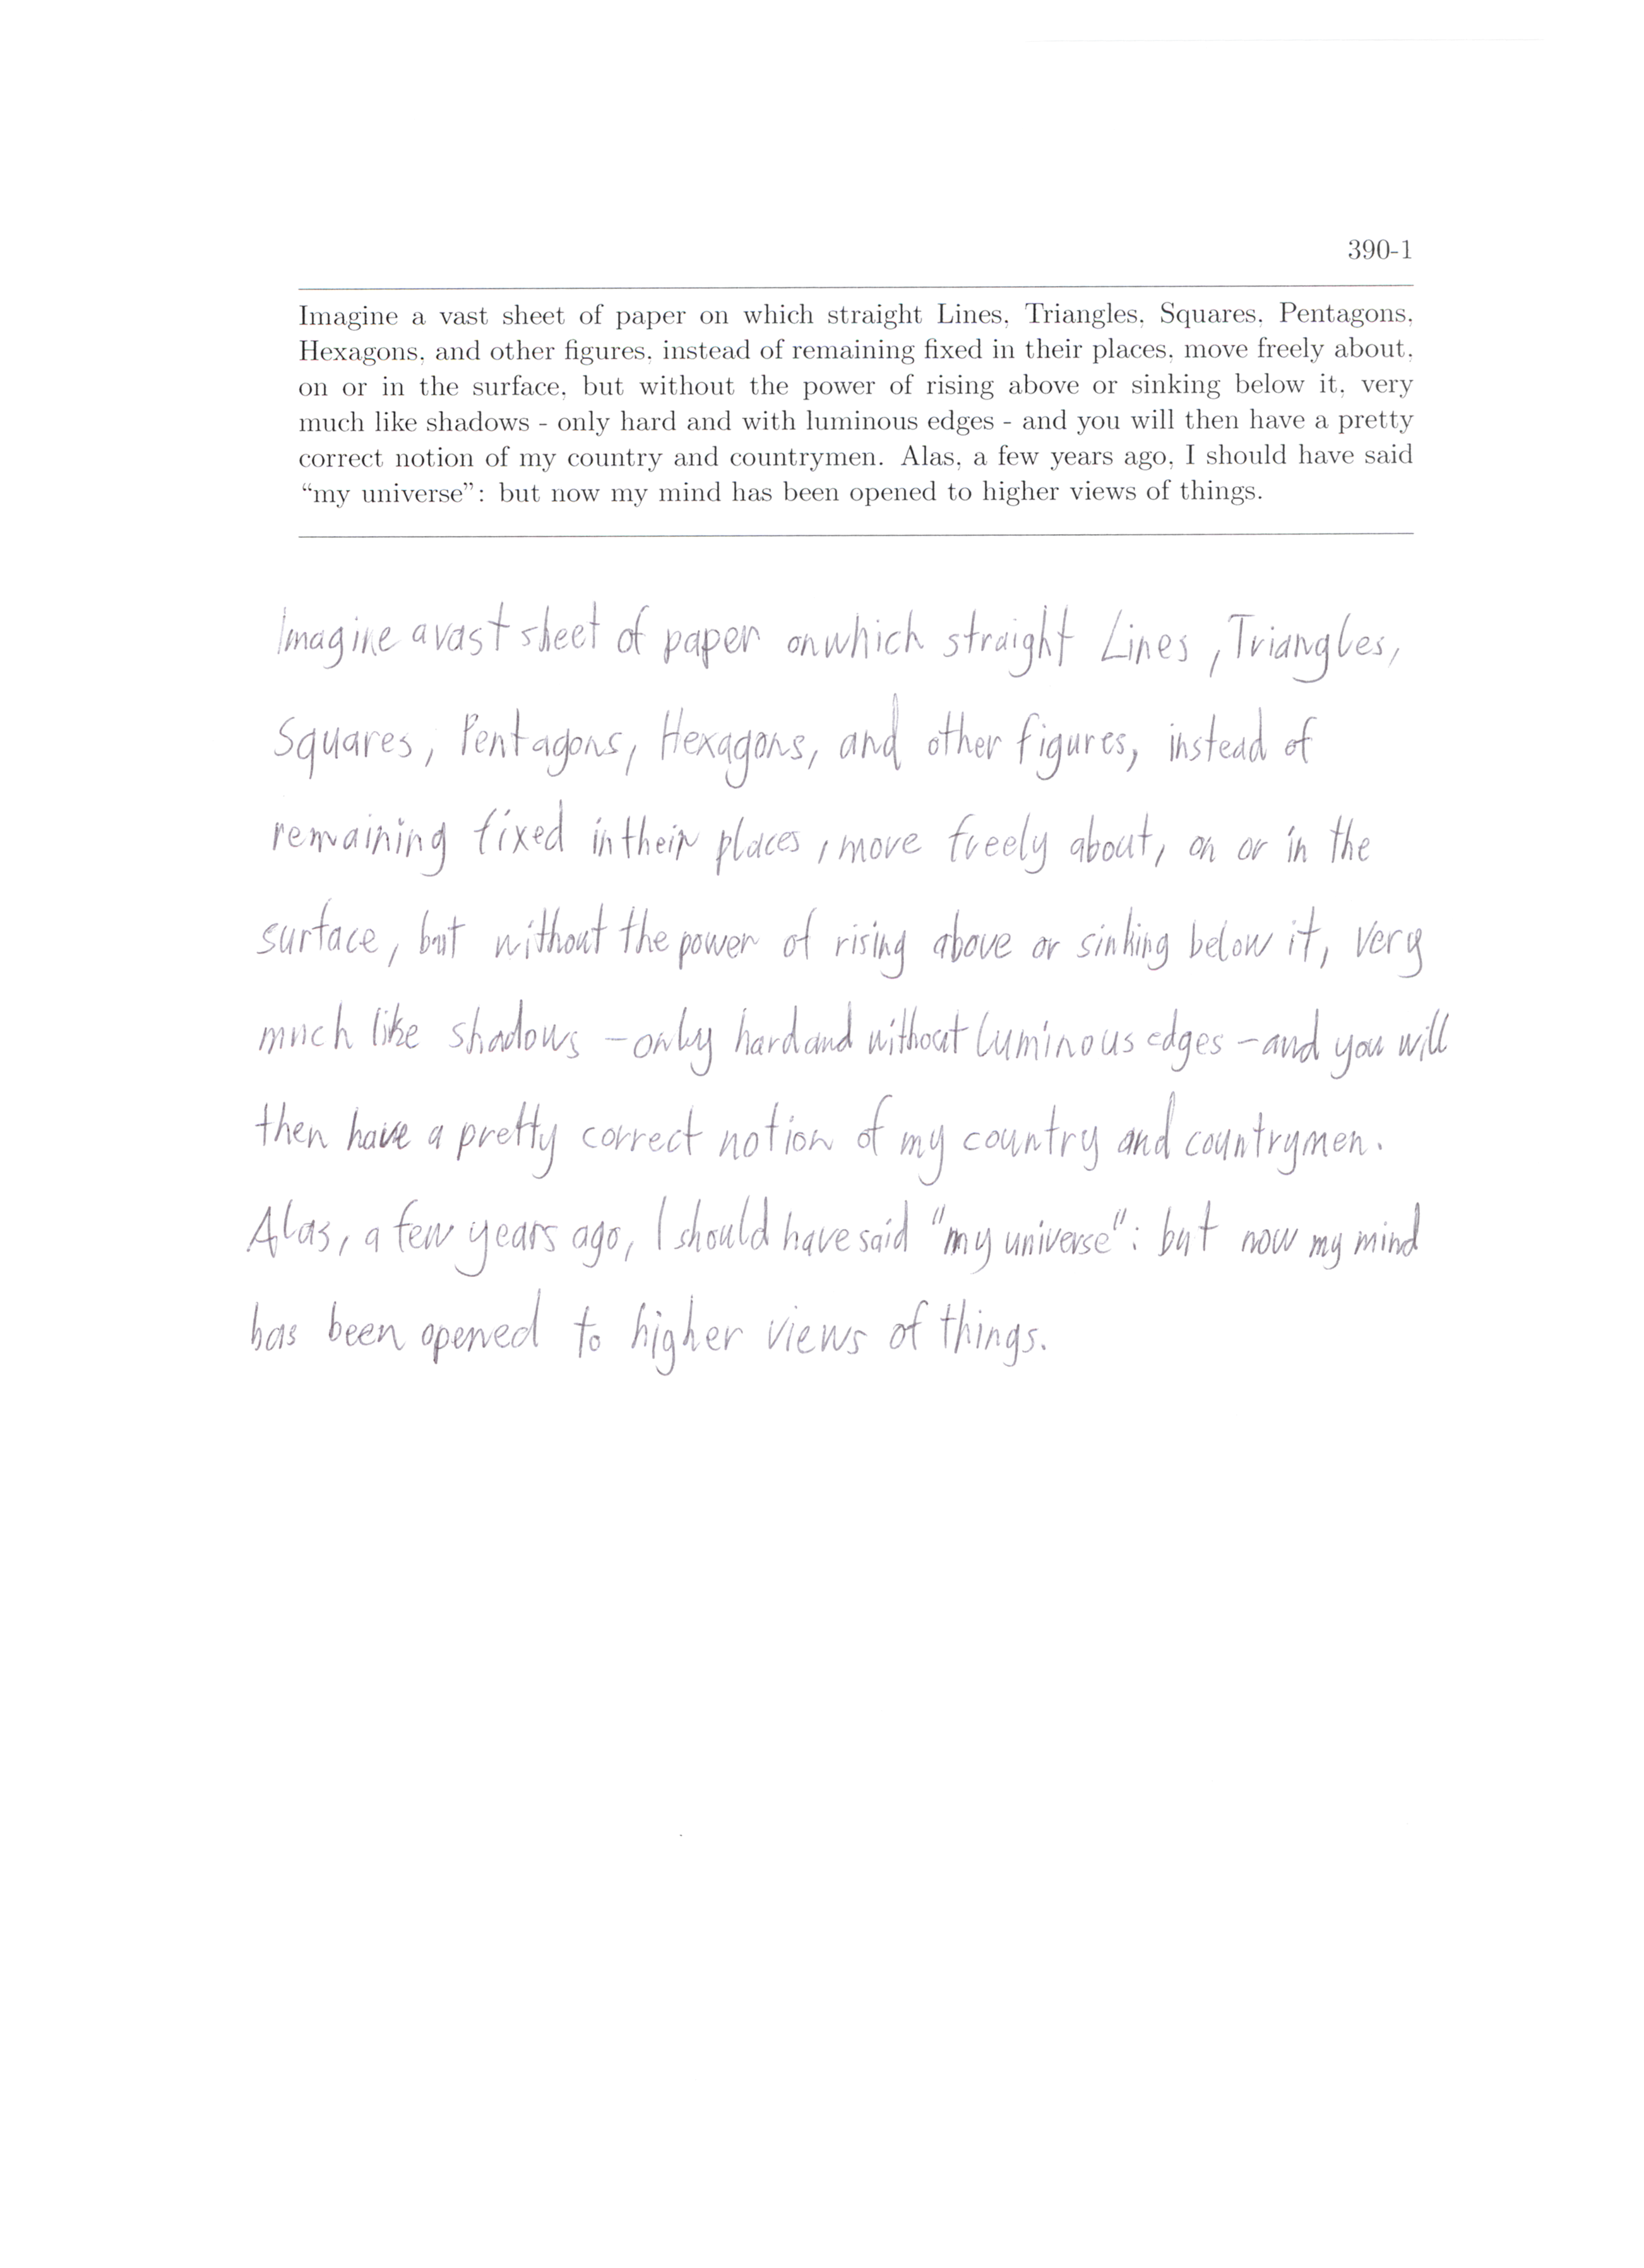 390-1
Imagine a vast sheet of paper on which straight Lines, Triangles, Squares, Pentagons,
Hexagons, and other figures, instead of remaining fixed in their places, move freely about,
on or in the surface, but without the power of rising above or sinking below it, very
much like shadows - only hard and with luminous edges - and you will then have a pretty
correct notion of my country and countrymen. Alas, a few years ago, I should have said
“my universe”: but now my mind has been opened to higher views of things.
Imagine a vast sheet of paper on which straight Lines, Triangles,
Squares, Pentagons, Hexagons, and other figures, instead of
remaining fixed in their places, move freely about, on or in the
surface, but without the power of rising above or sinking below it, very
much like shadows - only hard and without luminous edges - and you will
then have a pretty correct notion of my country and countrymen.
Alas, a few years ago, I should have said "my universe": but now my mind
has been opened to higher views of things.